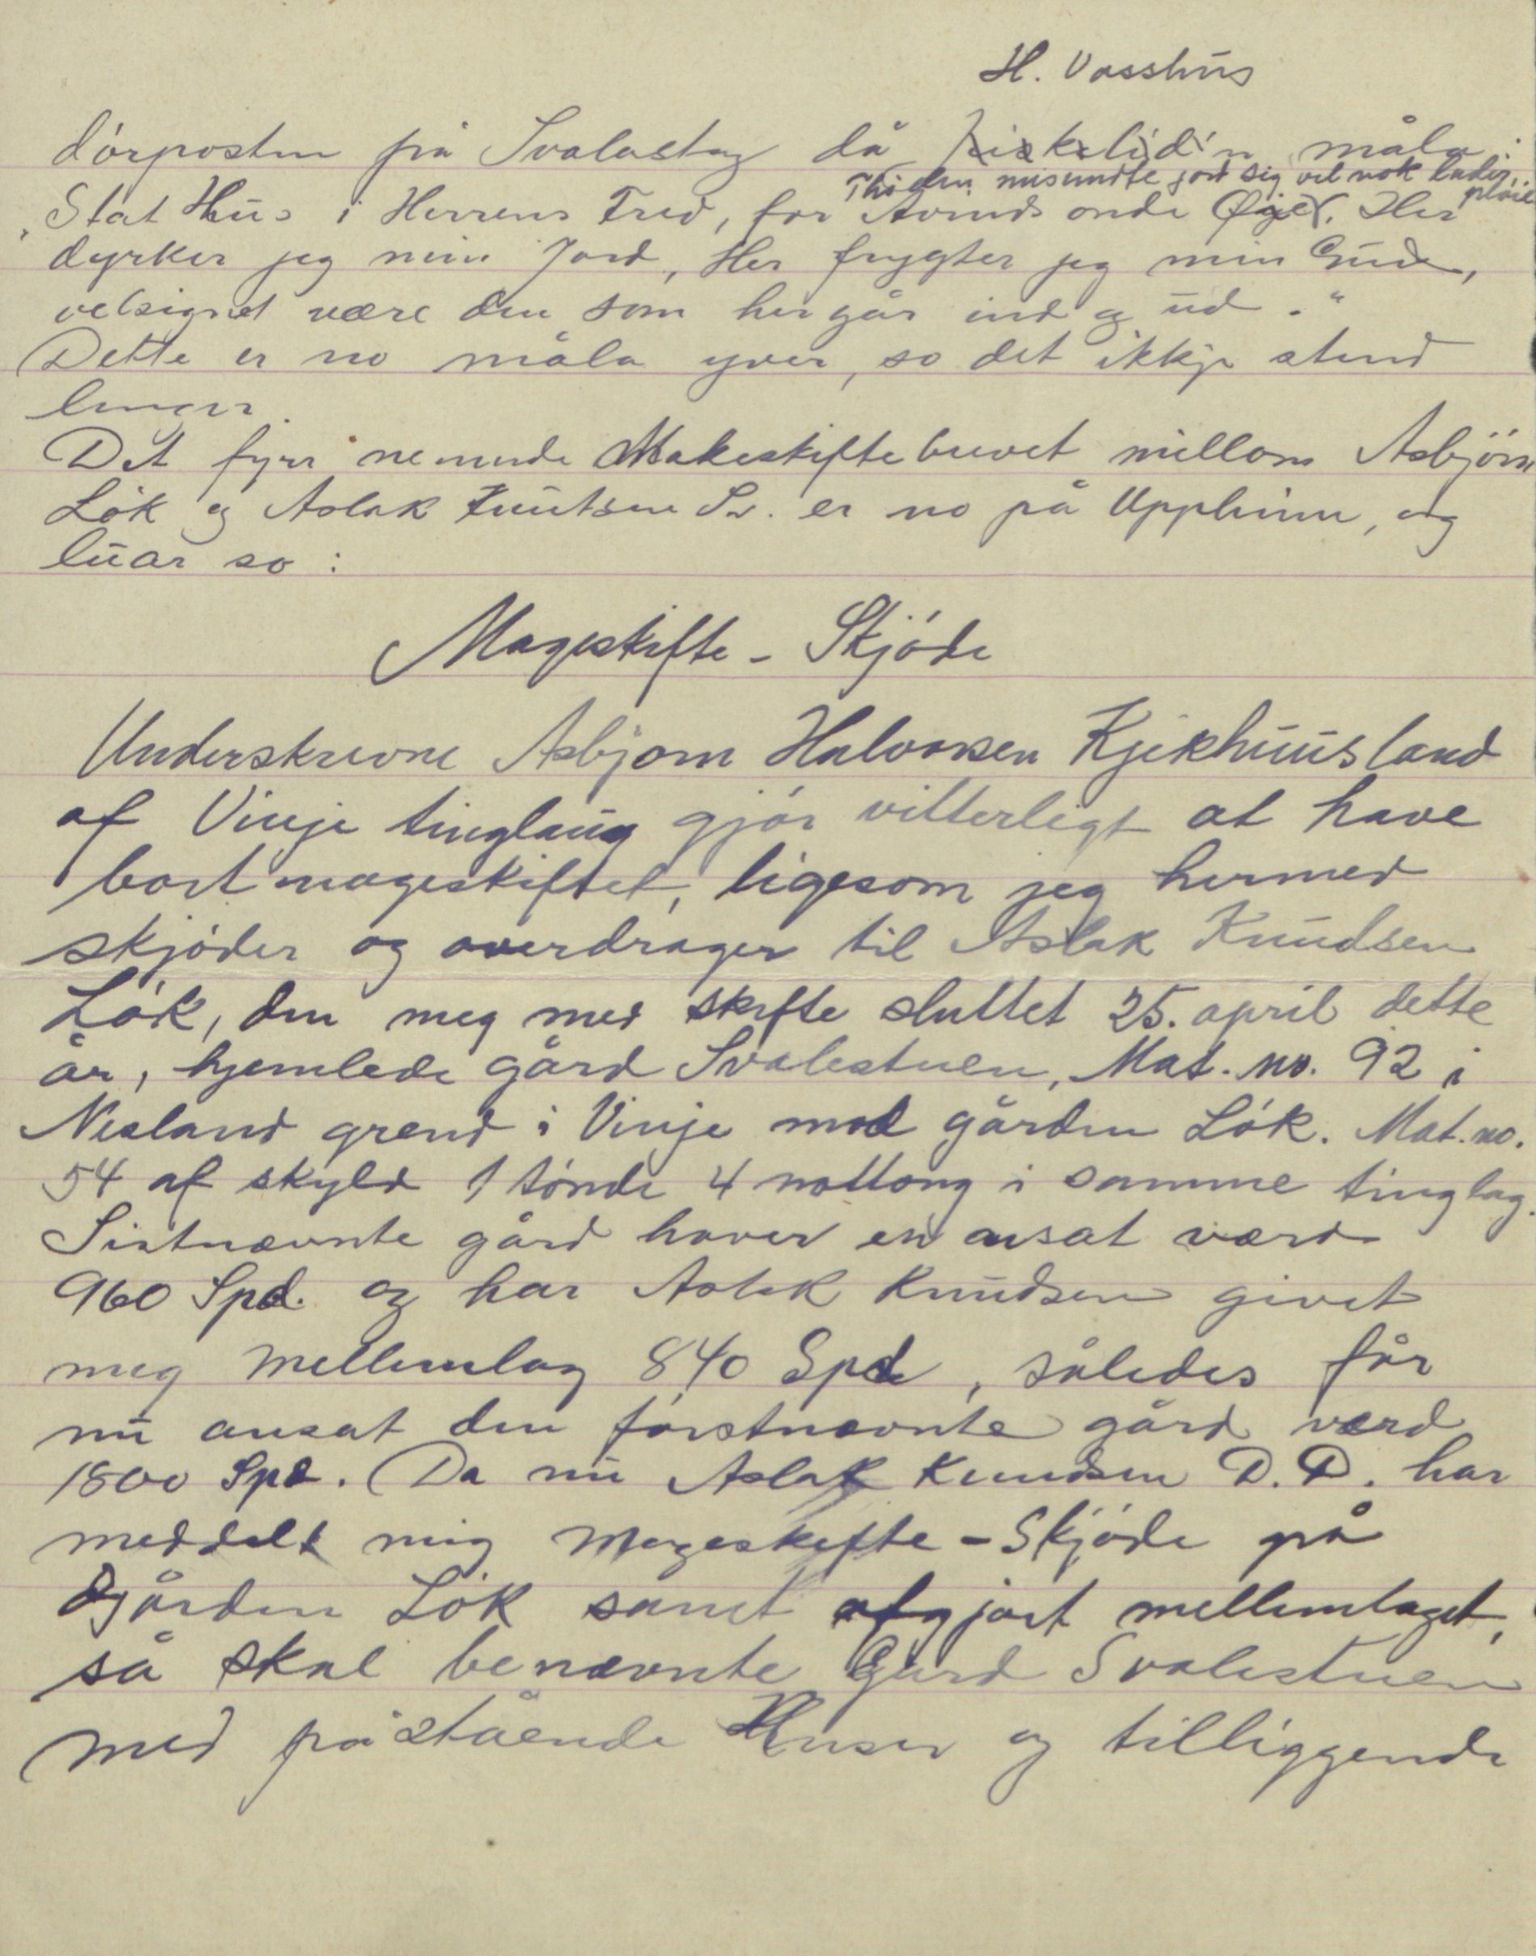 H. Vasshus
dörposten på Svalastog då Kisklidin måla:
Thi den misundte jord sig vel nok lader pløie
"Stat Hus i Herrens Fred, for Avinds onde Øje. Her
dyrker jeg min Jord, Her frygter jeg min Gud,
velsignet være den som her går ind og ud."
Dette er no måla yver, so det ikkje stend
lenger.
Det fyrr nemnde Makeskiftebrevet millom Asbjörn
Lök og Aslak Knutsen Sv. er no på Upphimm, og
luar so:
Mageskifte - Skjöde
Underskrevne Asbjorn Halvorsen Kjekhuusland
af Vinje tinglaug gjör vitterligt at have
bortmageskiftet, ligesom jeg hermed
skjöder og overdrager til Aslak Knudsen
Lök, den meg med skifte sluttet 25. april dette
år, hjemlede gård Svalestuen, Mat. no. 92 i
Nesland grend i Vinje mod gården Lök. Mat. no.
54 af skyld 1 tönde 4 nottong i samme tinglag.
Sistnævnte gård haver en ansat værd
960 Spd. og har Aslak Knudsen givet
meg mellemlag 840 Spd, således får
nu ansat den forstnævnte gård værd
1800 Spd. Da nu Aslak Knudsen D.D. har
meddelt mig Mageskifte-Skjöde på
gården Lök samt afgjort mellemlaget,
så skal benævnte Gård Svalestuen
med påstående Huser og tilliggende